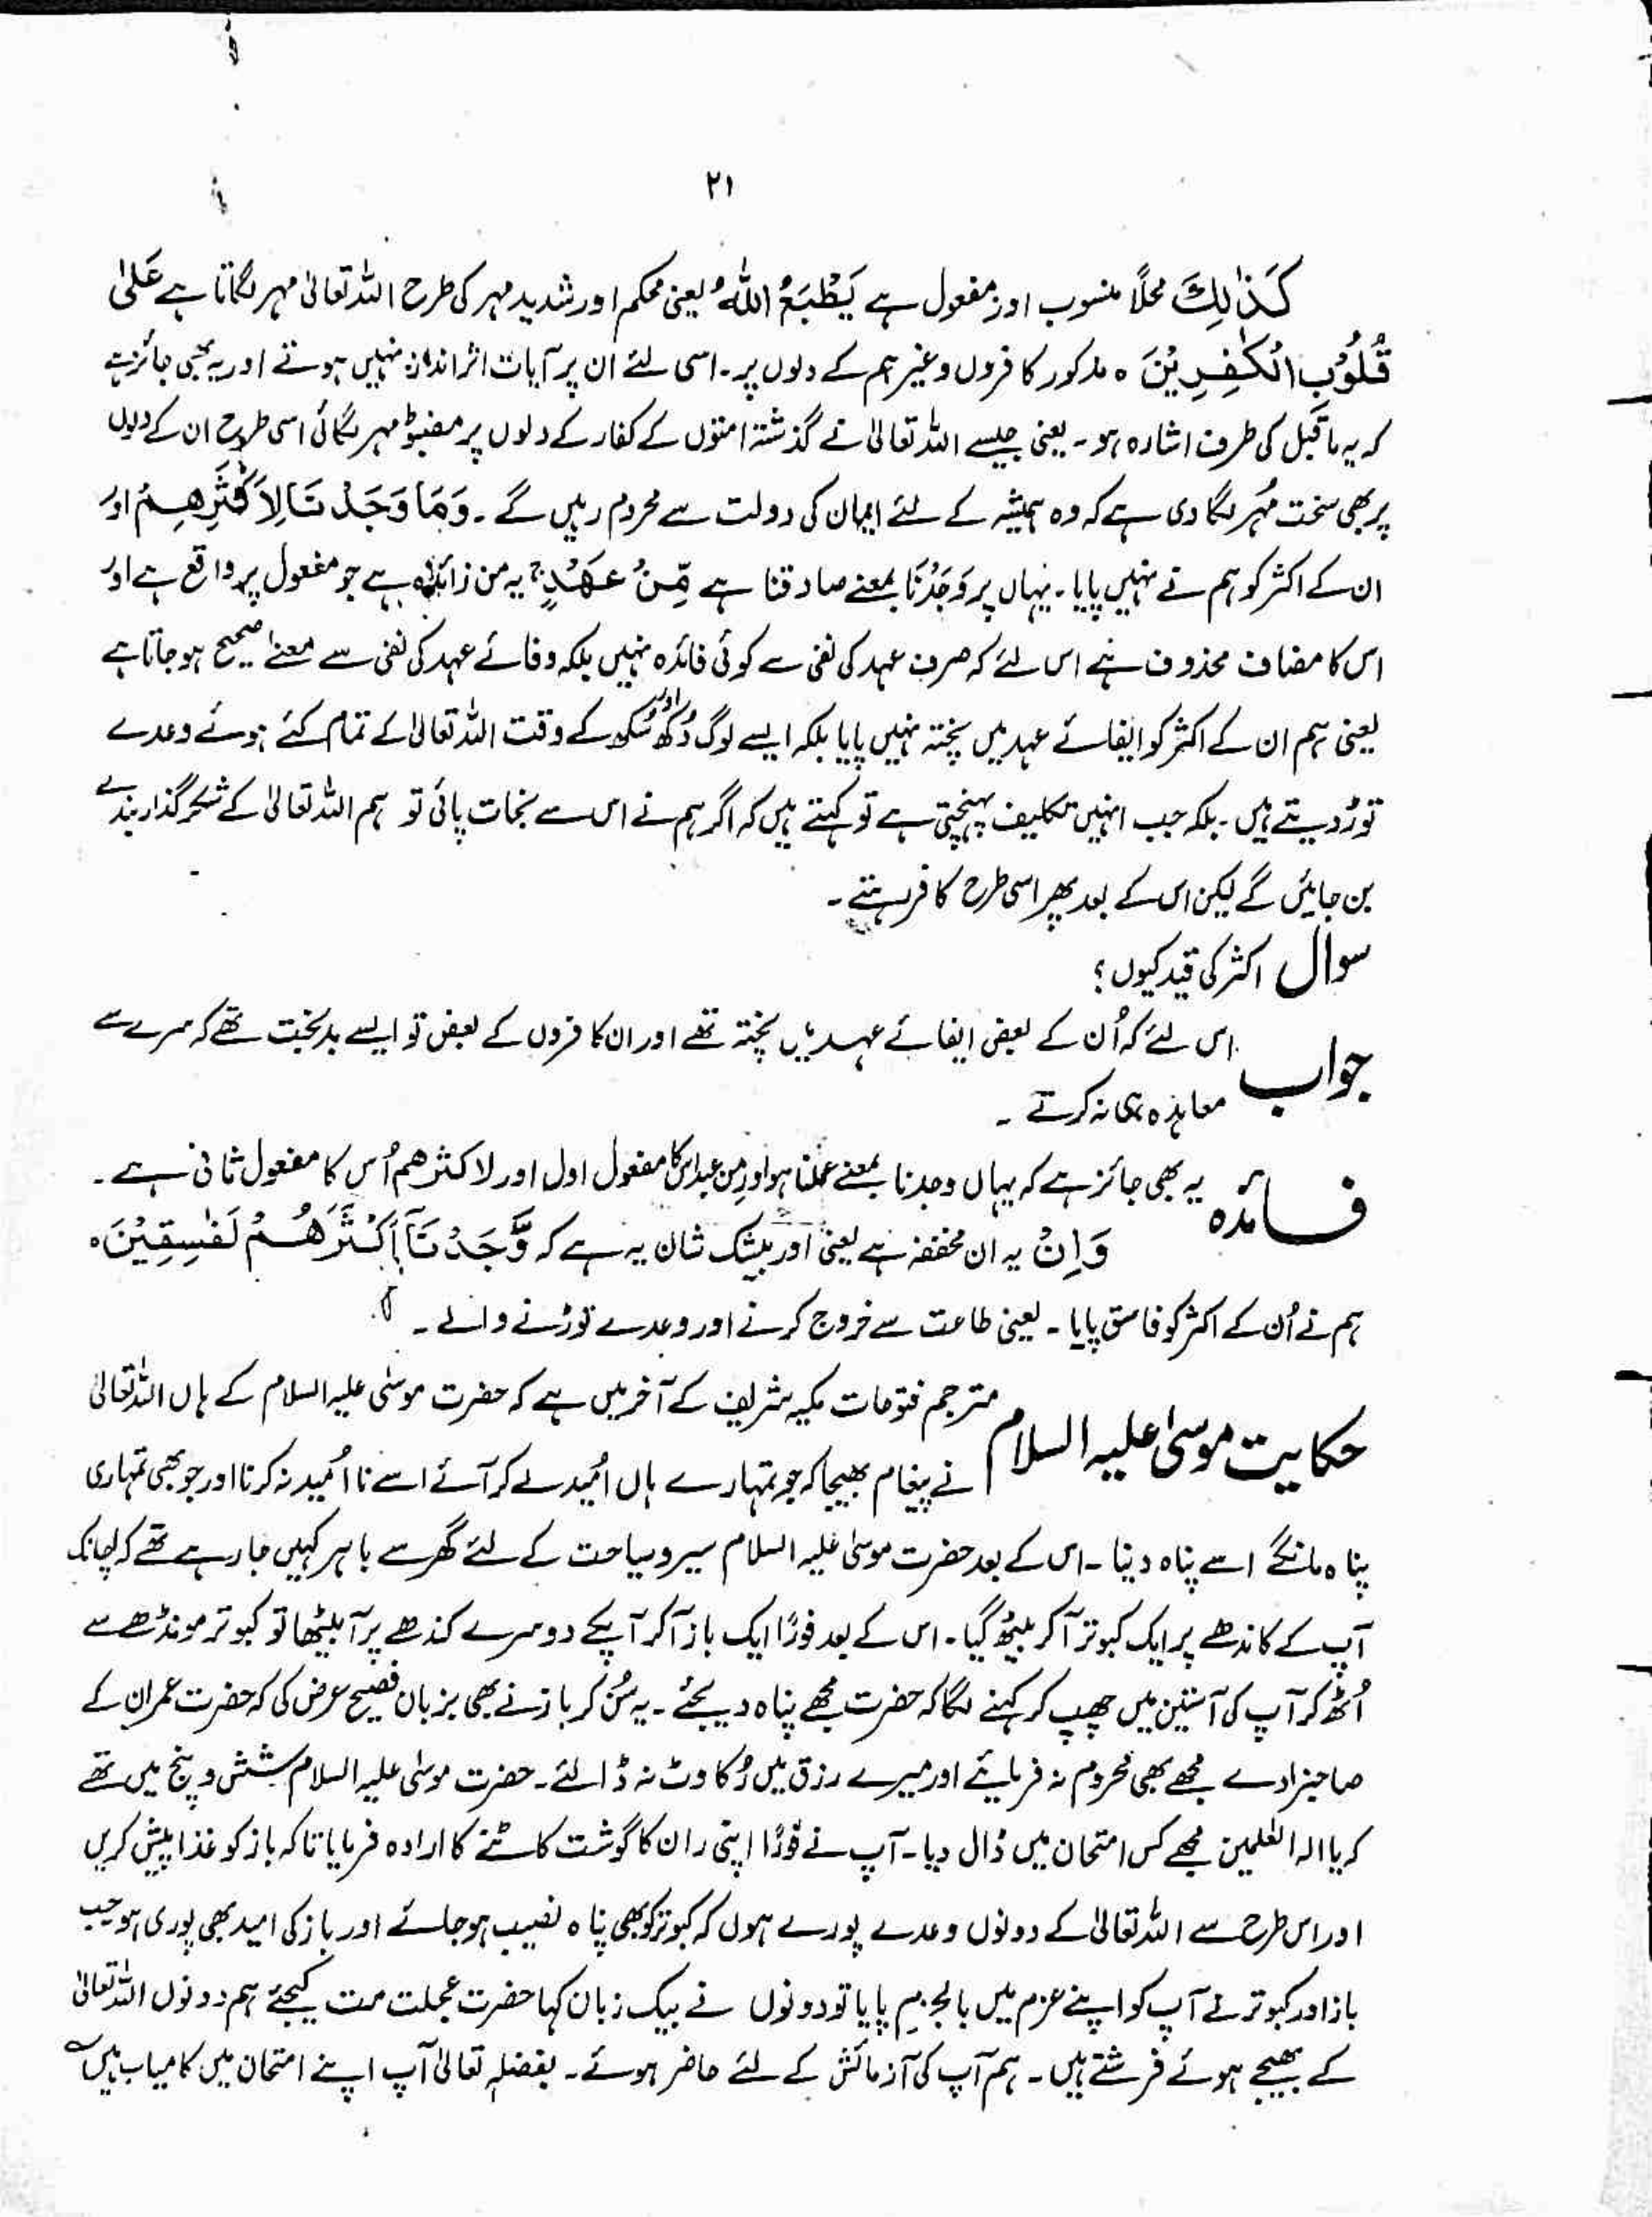 ۲۱
کَذٰلِکَ محلًا منسوب اور مفعول ہے یَطْبَعُ اللّٰهُ یعنی محکم اور شدید مہر کی طرح اللہ تعالیٰ مہر لگاتا ہے عَلٰی
قُلُوْبِ الْکٰفِرِیْنَ ہ مذکور کافروں وغیرہم کے دلوں پر۔ اسی لئے ان پر آیات اثر انداز نہیں ہوتے اور یہ بھی جائز ہے
کہ یہ ماقبل کی طرف اشارہ ہو۔ یعنی جیسے اللہ تعالیٰ نے گذشتہ امتوں کے کفار کے دلوں پر مضبوط مہر لگائی اسی طرح ان کے دلوں
پر بھی سخت مُہر لگا دی ہے کہ وہ ہمیشہ کے لئے ایمان کی دولت سے محروم رہیں گے۔ وَمَا وَجَدْنَا لِاَکْثَرِهِمْ اور
ان کے اکثر کو ہم نے نہیں پایا۔ یہاں پر وَجَدْنَا بمعنے صادقنا ہے مِّنْ عَهْدٍ ج یہ من زائدہ ہے جو مفعول پر واقع ہے اور
اس کا مضاف محذوف ہے اس لئے کہ صرف عہد کی نفی سے کوئی فائدہ نہیں بلکہ وفائے عہد کی نفی سے معنےٰ صحیح ہو جاتا ہے
یعنی ہم ان کے اکثر کو ایفائے عہد میں پختہ نہیں پایا بلکہ ایسے لوگ دُکھ اور سُکھ کے وقت اللہ تعالیٰ کے تمام کئے ہوئے وعدے
توڑ دیتے ہیں۔ بلکہ جب انہیں تکلیف پہنچتی ہے تو کہتے ہیں کہ اگر ہم نے اس سے نجات پائی تو ہم اللہ تعالیٰ کے شکر گذار بندے
بن جائیں گے لیکن اس کے بعد پھر اسی طرح کافر رہتے۔
سوال اکثر کی قید کیوں؟
جواب اس لئے کہ اُن کے بعض ایفائے عہد میں پختہ تھے اور ان کافروں کے بعض تو ایسے بدبخت تھے کہ سرے سے
معاہدہ ہی نہ کرتے۔
فائدہ یہ بھی جائز ہے کہ یہاں وجدنا بمعنے علمنا ہو اور من عہد اس کا مفعول اول اور لاکثرهم اُس کا مفعول ثانی ہے۔
وَاِنْ یہ ان مخففہ ہے یعنی اور بیشک شان یہ ہے کہ وَّجَدْنَآ اَکْثَرَهُمْ لَفٰسِقِیْنَ ہ
ہم نے اُن کے اکثر کو فاسق پایا۔ یعنی طاعت سے خروج کرنے اور وعدے توڑنے والے۔
حکایت موسیٰ علیہ السلام مترجم فتوحات مکیہ شریف کے آخر میں ہے کہ حضرت موسٰی علیہ السلام کے ہاں اللہ تعالیٰ
نے پیغام بھیجا کہ جو تمہارے ہاں اُمید لے کر آئے اسے نا اُمید نہ کرنا اور جو بھی تمہاری
پناہ مانگے اسے پناہ دینا۔ اس کے بعد حضرت موسٰی علیہ السلام سیر و سیاحت کے لئے گھر سے باہر کہیں جا رہے تھے کہ اچانک
آپ کے کاندھے پر ایک کبوتر آ کر بیٹھ گیا۔ اس کے بعد فورًا ایک باز آ کر آپکے دوسرے کندھے پر آ بیٹھا تو کبوتر مونڈھے سے
اُٹھ کر آپ کی آستین میں چھپ کر کہنے لگا کہ حضرت مجھے پناہ دیجئے۔ یہ سُن کر باز نے بھی بزبان فصیح عرض کی کہ حضرت عمران کے
صاحبزادے مجھے بھی محروم نہ فرمایئے اور میرے رزق میں رُکاوٹ نہ ڈالئے۔ حضرت موسٰی علیہ السلام شش و پنج میں تھے
کہ یا الہ العٰلمین مجھے کس امتحان میں ڈال دیا۔ آپ نے فورًا اپنی ران کا گوشت کاٹنے کا ارادہ فرمایا تاکہ باز کو غذا پیش کریں
اور اس طرح سے اللہ تعالیٰ کے دونوں وعدے پورے ہوں کہ کبوتر کو بھی پناہ نصیب ہو جائے اور باز کی امید بھی پوری ہو جب
باز اور کبوتر نے آپ کو اپنے عزم میں بالجزم پایا تو دونوں نے بیک زبان کہا حضرت عجلت مت کیجئے ہم دونوں اللہ تعالیٰ
کے بھیجے ہوئے فرشتے ہیں۔ ہم آپ کی آزمائش کے لئے حاضر ہوئے۔ بفضلہٖ تعالیٰ آپ اپنے امتحان میں کامیاب ہیں